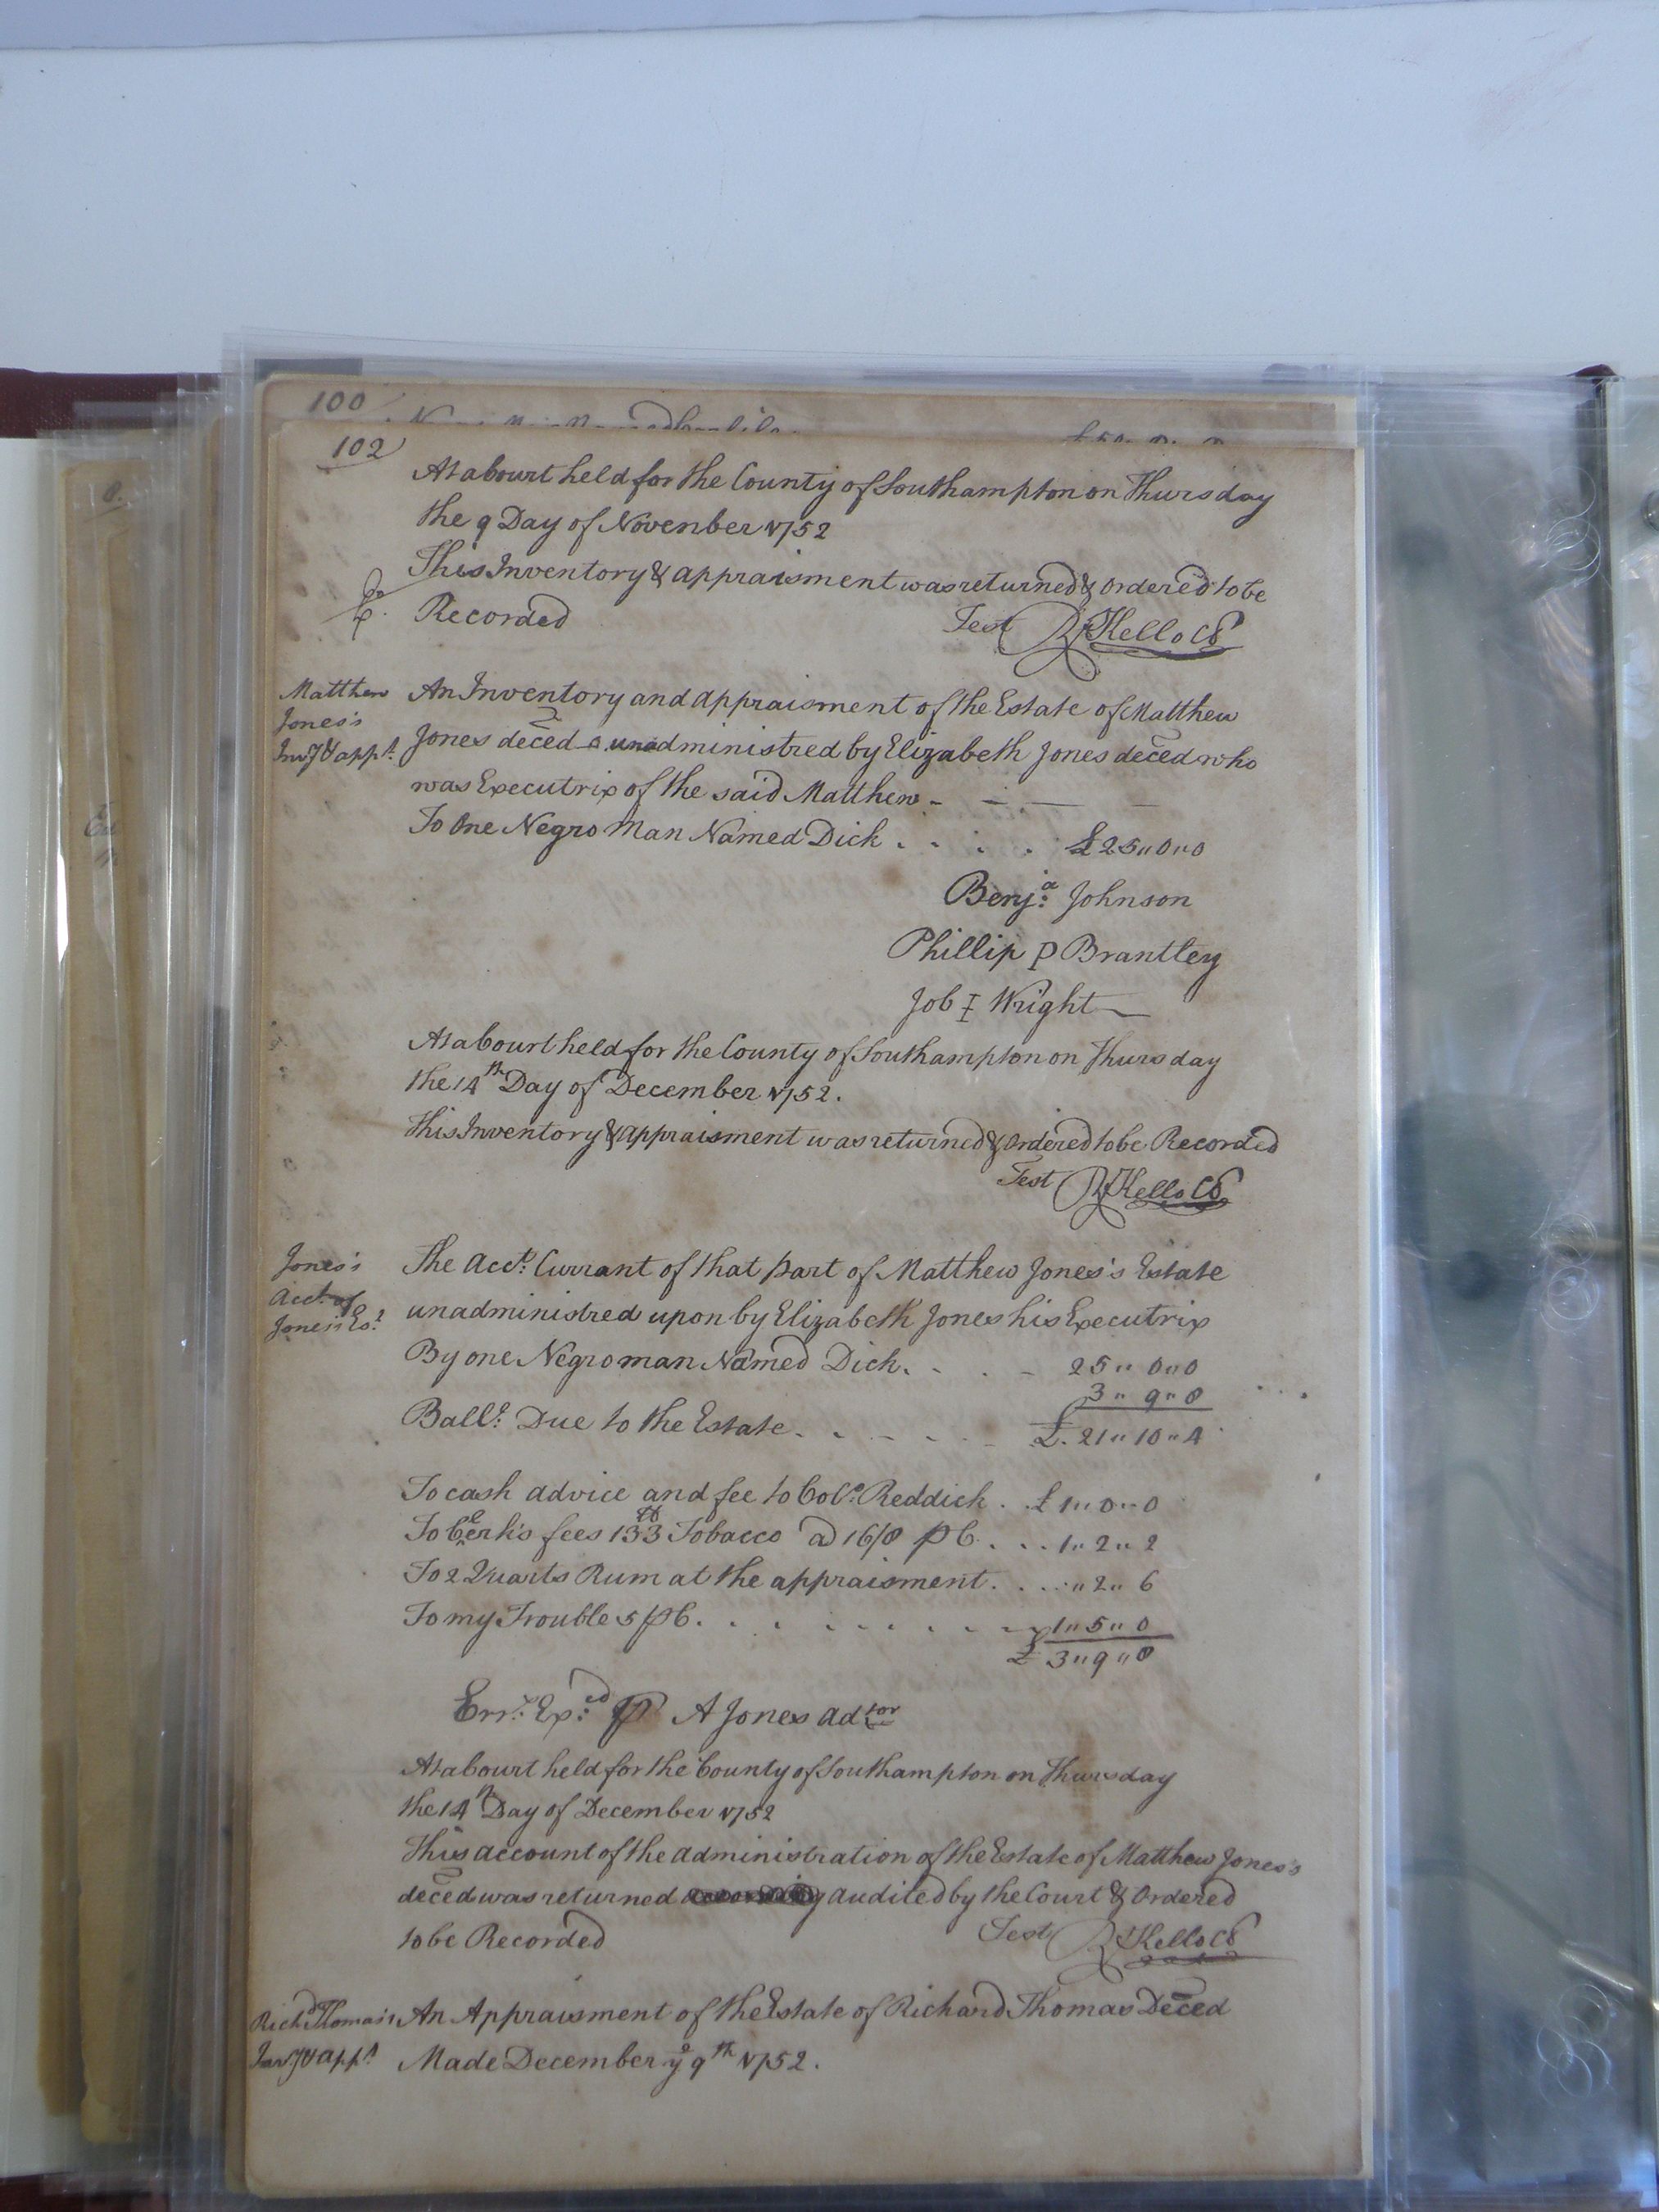 100
102
At a Court held for the County of Southampton on Thursday
the 9 Day of November 1752
This Inventory & appraisment was returned & Ordered to be
Recorded Test R Kello CC
Matthew
Jones's
Invy & appt.
An Inventory and appraisment of the Estate of Matthew
Jones deced unadministred by Elizabeth Jones deced who
was Executrix of the said Matthew - - - -
To One Negro Man Named Dick . . . . £25"0"0
Benja: Johnson
Phillip P Brantley
Job I Wright
At a Court held for the County of Southampton on Thursday
the 14th Day of December 1752.
This Inventory & appraisment was returned & Ordered to be Recorded
Test R Kello CC
Jones's
Acct. of
Jones's Est
The Acct. Currant of that part of Matthew Jones's Estate
unadministred upon by Elizabeth Jones his Executrix
By one Negro man Named Dick. . . - 25"0"0
3"9"8
Balle: Due to the Estate. . - - - - £.21"10"4
To cash advice and fee to Colo: Reddick . . £1"0"0
To Cerk's fees 133 lb Tobacco a 16/8 p C. . . . 1"2"2
To 2 Quarts Rum at the appraisment. . . . . "2"6
To my Trouble 5 p C. . . . . . . . . 1"5"0
£3"9"8
Errs. Exped: p A Jones Adtor
At a Court held for the County of Southampton on Thursday
the 14th Day of December 1752
This account of the administration of the Estate of Matthew Jones's
deced was returned audited by the Court & Ordered
to be Recorded Test R Kello CC
Richd Thomas's
Invy & appt
An Appraisment of the Estate of Richard Thomas Deced
Made December ye 9th 1752.